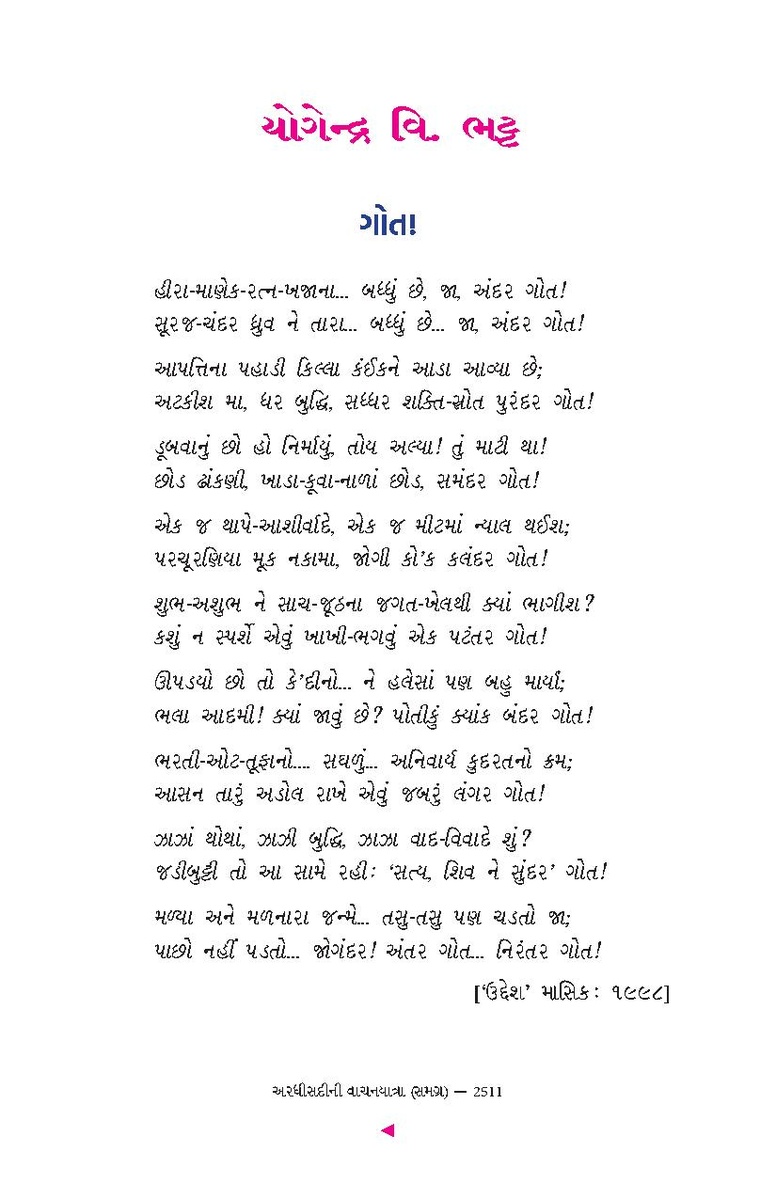 યોગેન્દ્ર વિ. ભટ્ટ
ગોત!
હીરા-માણેક-રત્ન-ખજાના... બધ્ધું છે, જા, અંદર ગોત!
સૂરજ-ચંદર ધ્રુવ ને તારા... બધ્ધું છે... જા, અંદર ગોત!
આપત્તિના પહાડી કિલ્લા કંઈકને આડા આવ્યા છે;
અટકીશ મા, ધર બુદ્ધિ, સધ્ધર શક્તિ-સ્રોત પુરંદર ગોત!
ડૂબવાનું છો હો નિર્માયું, તોય અલ્યા! તું માટી થા!
છોડ ઢાંકણી, ખાડા-કૂવા-નાળાં છોડ, સમંદર ગોત!
એક જ થાપે-આશીર્વાદે, એક જ મીટમાં ન્યાલ થઈશ;
પરચૂરણિયા મૂક નકામા, જોગી કો’ક કલંદર ગોત!
શુભ-અશુભ ને સાચ-જૂઠના જગત-ખેલથી ક્યાં ભાગીશ?
કશું ન સ્પર્શે એવું ખાખી-ભગવું એક પટંતર ગોત!
ઊપડયો છો તો કે’દીનો... ને હલેસાં પણ બહુ માર્યાં;
ભલા આદમી! ક્યાં જાવું છે? પોતીકું ક્યાંક બંદર ગોત!
ભરતી-ઓટ-તૂફાનો.... સઘળું... અનિવાર્ય કુદરતનો ક્રમ;
આસન તારું અડોલ રાખે એવું જબરું લંગર ગોત!
ઝાઝાં થોથાં, ઝાઝી બુદ્ધિ, ઝાઝા વાદ-વિવાદે શું?
જડીબુટ્ટી તો આ સામે રહીઃ ‘સત્ય, શિવ ને સુંદર’ ગોત!
મળ્યા અને મળનારા જન્મે... તસુ-તસુ પણ ચડતો જા;
પાછો નહીં પડતો... જોગંદર! અંતર ગોત... નિરંતર ગોત!
[‘ઉદ્દેશ’ માસિકઃ ૧૯૯૮]
અરધીસદીની વાચનયાત્રા (સમગ્ર) — 2511